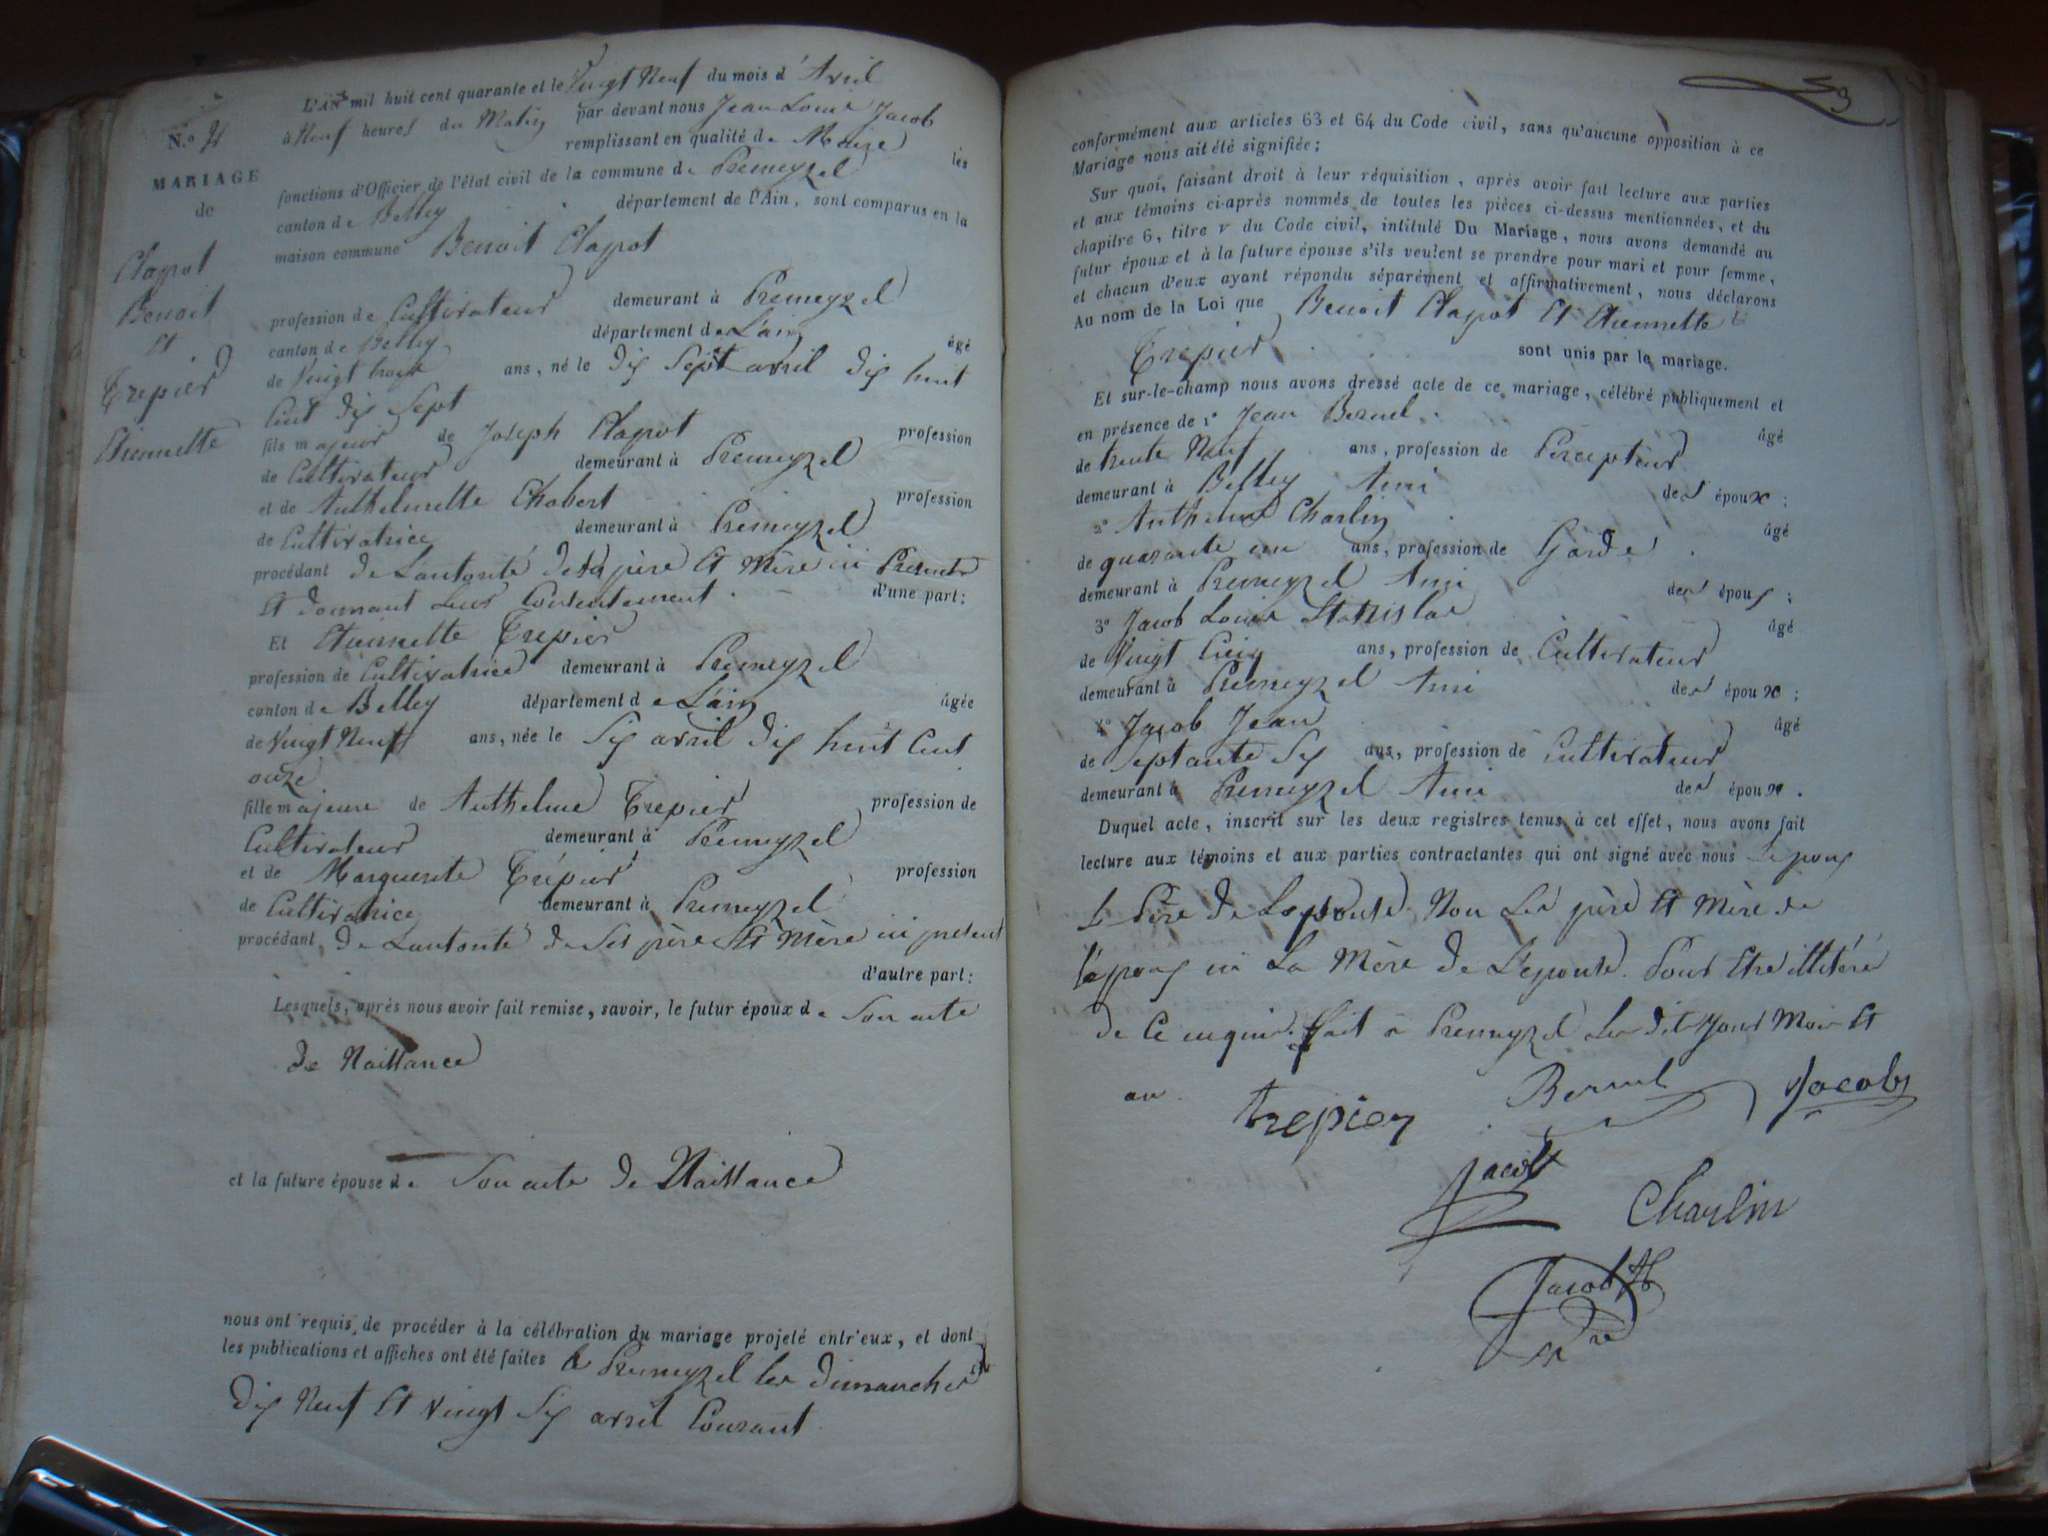 L'AN mil huit cent quarante et le Vingt Neuf du mois d'Avril
à Neuf heures du Matin par devant nous Jean Louis Jacob
remplissant en qualité de Maire les
fonctions d'Officier de l'état civil de la commune de Premeyzel
canton de Belley département de l'Ain, sont comparus en la
maison commune Benoit Clapot
profession de Cultivateur demeurant à Premeyzel
canton de Belley département de L'ain âgé
de Vingt trois ans, né le dix Sept avril dix huit
Cent dix Sept
fils majeur de Joseph Clapot profession
de Cultivateur demeurant à Premeyzel
et de Anthelmette Chabert profession
de Cultivatrice demeurant à Premeyzel
procédant de L'autorité de ses père Et Mère ici Présents
Et donnant Leur Consentement d'une part;
Et Etiennette Trepier
profession de Cultivatrice demeurant à Premeyzel
canton de Belley département de L'ain âgée
de Vingt Neuf ans, née le Six avril dix huit Cent
onze
fille majeure de Anthelme Trepier profession de
Cultivateur demeurant à Premeyzel
et de Marguerite Trépier profession
de Cultivatrice demeurant à Premeyzel
procédant de L'autorité de Ses père Et Mère ici present
d'autre part;
Lesquels, après nous avoir fait remise, savoir, le futur époux de Son acte
de Naissance
et la future épouse de Son acte de Naissance
nous ont requis de procéder à la célébration du mariage projeté entr'eux, et dont
les publications et affiches ont été faites à Premeyzel les dimanches
dix Neuf Et Vingt Six avril Courant
N.°
MARIAGE
de
Clapot
Benoit
Et
Trepier
Etiennette
conformément aux articles 63 et 64 du Code civil, sans qu'aucune opposition à ce
Mariage nous ait été signifiée;
Sur quoi, faisant droit à leur réquisition, après avoir fait lecture aux parties
et aux témoins ci-après nommés de toutes les pièces ci-dessus mentionnées, et du
chapitre 6, titre v du Code civil, intitulé Du Mariage, nous avons demandé au
futur époux et à la future épouse s'ils veulent se prendre pour mari et pour femme,
et chacun d'eux ayant répondu séparément et affirmativement, nous déclarons
Au nom de la Loi que Benoit Clapot Et Etiennette
Trepier sont unis par le mariage.
Et sur-le-champ nous avons dressé acte de ce mariage, célébré publiquement et
en présence de 1° Jean âgé
de trente Neuf ans, profession de Percepteur
demeurant à Belley Ami des époux;
2° Anthelme Charlin âgé
de quarante un ans, profession de Garde
demeurant à Premeyzel Ami des époux;
3° Jacob Louis Stanislas âgé
de Vingt Cinq ans, profession de Cultivateur
demeurant à Premeyzel Ami des époux;
4° Jacob Jean âgé
de Septante Six ans, profession de Cultivateur
demeurant à Premeyzel Ami des époux.
Duquel acte, inscrit sur les deux registres tenus à cet effet, nous avons fait
lecture aux témoins et aux parties contractantes qui ont signé avec nous
Le Père de L'épouse Non Les père Et Mère de
l'époux ni La Mère de L'épouse. Pour Etre illitéré
de Ce enquis. fait à Premeyzel Les dit Jour Mois Et
an
trepier
Jacob
Jacob
Charlin
Jacob